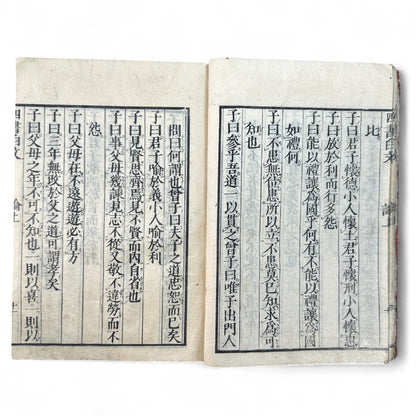 比
子曰君子懷德小人懷土君子懷刑小人懷惠
子曰放於利而行多怨
子曰能以禮讓爲國乎何有不能以禮讓爲國
如禮何
子曰不患無位患所以立不患莫已知求爲可
知也
子曰參乎吾道一以貫之曾子曰唯子出門人
問曰何謂也曾子曰夫子之道忠恕而已矣
子曰君子喻於義小人喻於利
子曰見賢思齊焉見不賢而內自省也
子曰事父母幾諫見志不從又敬不違勞而不
怨
子曰父母在不遠遊遊必有方
子曰三年無改於父之道可謂孝矣
子曰父母之年不可不知也一則以喜一則以
論上